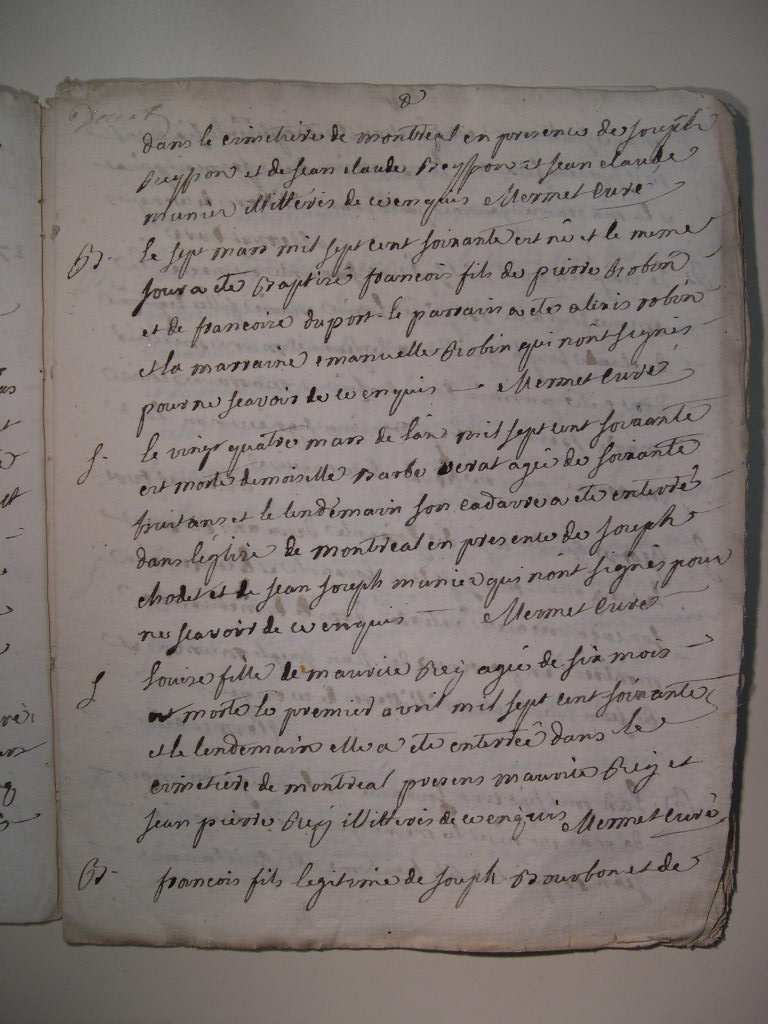 8
dans le cimetiere de montreal en presence de Joseph
Reÿpon et de Jean claude Reÿpon et Jean claude
munier illitteris de ce enquis Mermet Curé
B. Le sept mars mil sept cent soixante est né et le meme
Jour a ete Baptizé francois fils de pierre Robin
et de francoise duport le parrain a ete alexis robin
et la marraine emanuelle Robin qui nônt signés
pour ne scavoir de ce enquis Mermet Curé
S. le vingt quatre mars de lán mil sept cent soixante
est morte demoiselle Barbe verat agée de soixante
huit ans et le lendémain son cadavre a ete enterré
dans léglize de montreal en presence de Joseph
chodet et de Jean Joseph munier qui nônt signés pour
ne scavoir de ce enquis Mermet Curé
S Louise fille de maurice Reÿ agée de six mois
est morte le premier avril mil sept cent soixante
et le lendemain elle a ete enterreé dans le
cimetiére de montreal presens maurice Reÿ et
Jean pierre Reÿ illitteris de ce enquis Mermet Curé
B. francois fils legitime de Joseph Bourbon et de